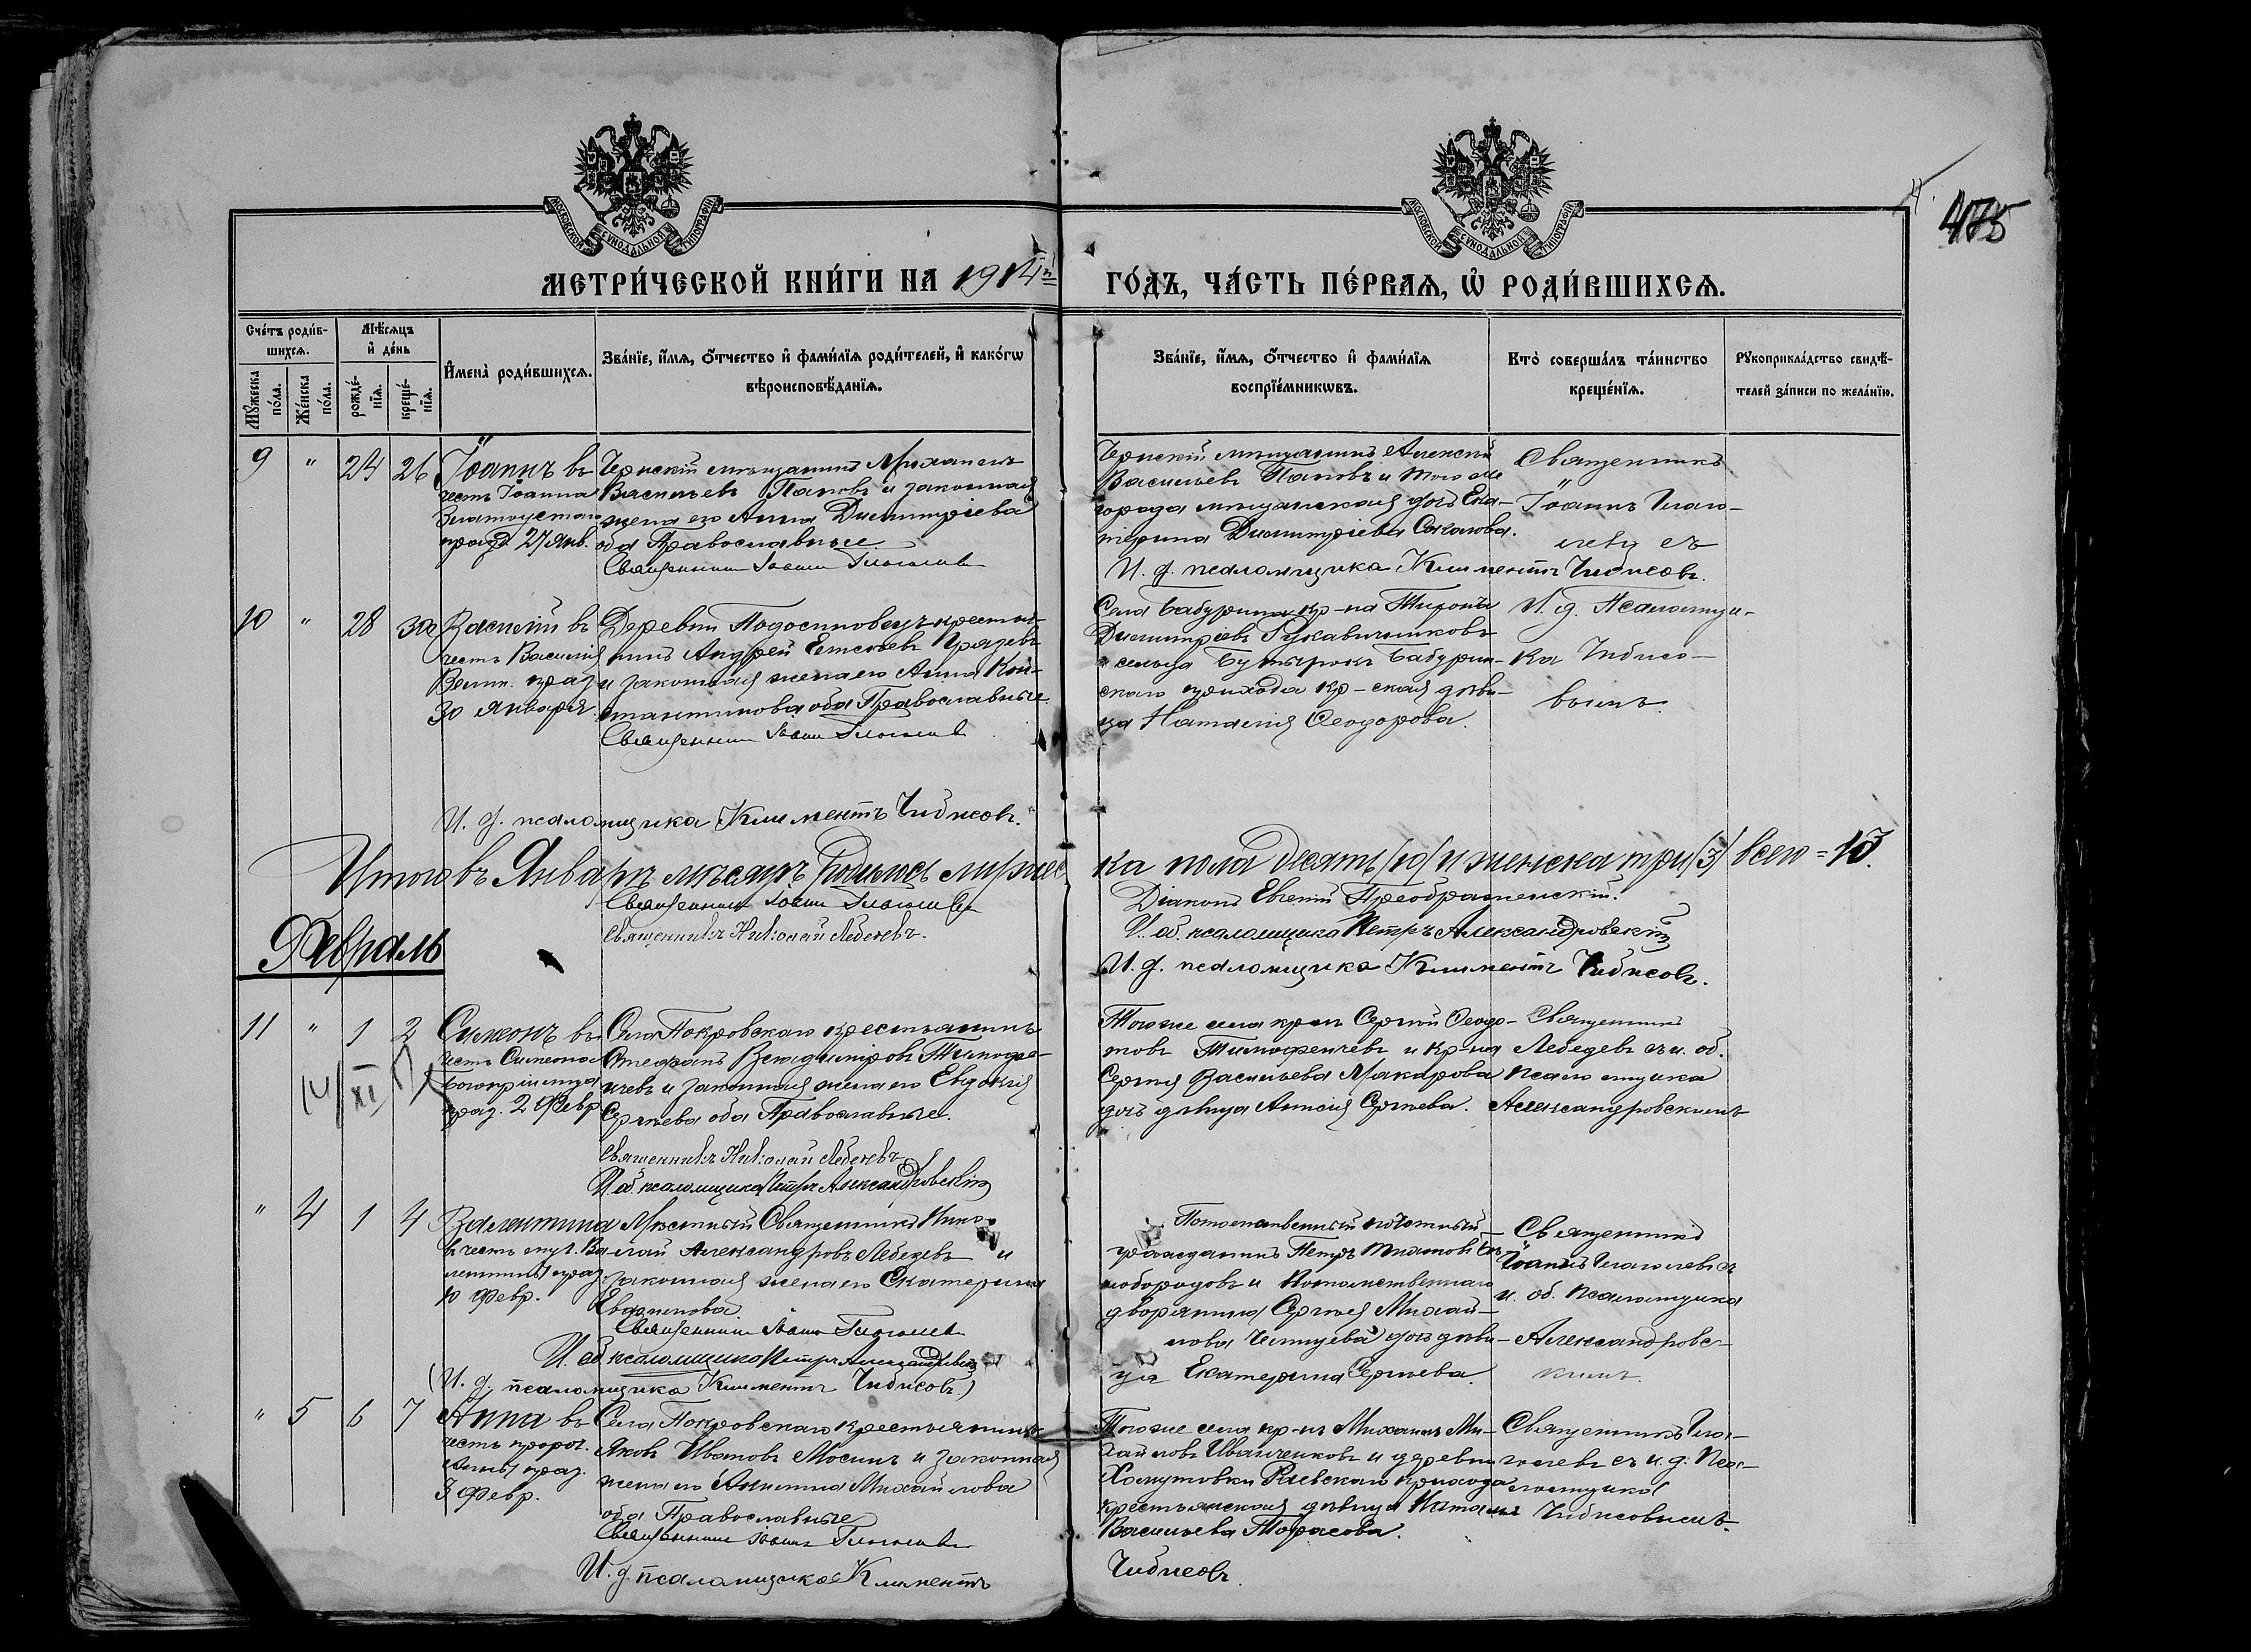 МОСКОВСКОЙ СУНОДАЛЬНОЙ ТИПОГРАФІИ
МОСКОВСКОЙ СУНОДАЛЬНОЙ ТИПОГРАФІИ
475
МЕТРИ́ЧЕСКОЙ КНИ́ГИ НА 1914й
ГО́ДЪ, ЧА́СТЬ ПЕ́РВАѦ, Ѡ РОДИ́ВШИХСѦ.
Сче́тъ роди́в-
шихсѧ.
Мѣ́сѧцъ
и де́нь
Мꙋжеска по́ла.
Же́нска по́ла.
рожде́-
нїѧ.
креще́-
нїѧ.
Имена̀ роди́вшихсѧ.
Зва́нїе, и́мѧ, ѻ́тчество и фами́лїѧ роди́телей, и како́гѡ
вѣроисповѣ́данїѧ.
Зва́нїе, и́мѧ, ѻ́тчество и фами́лїѧ
воспрїе́мникѡвъ.
Кто̀ соверша́лъ та́инство
креще́нїѧ.
Рꙋкоприкла́дство свидѣ́-
телей за́писи по жела́нїю.
9 " 24 26
Іоаннъ въ
честь Іоанна
Златоустаго
празд. 27 Янв.
Чернскій мѣщанинъ Михаилъ
Васильевъ Поповъ и законная
жена его Анна Димитріева
оба Православные
Священникъ Іоаннъ Глаголевъ
Чернскій мѣщанинъ Алексѣй
Васильевъ Поповъ и того же
города мѣщанская дочь Ека-
терина Димитріева Соколова.
И. д. псаломщика Климентъ Чибисовъ.
Священникъ
Іоаннъ Глаго-
левъ съ
10 " 28 30
Василій въ
честь Василія
Велик. праз.
30 Января
Деревни Подосиновецъ крестья-
нинъ Андрей
и законная жена его Анна Кон-
стантинова оба Православные.
Священникъ Іоаннъ Глаголевъ
Села Бабурина кр-нъ
Димитріевъ Рукавишниковъ
и сельца Бутырокъ Бабурин-
скаго прихода кр-ская дѣви-
ца Наталія Ѳеодорова.
И. д. Псаломщи-
ка Чибисо-
вымъ.
И. д. псаломщика Климентъ Чибисовъ.
Итого въ Январѣ мѣсяцѣ родилось мужес
ка пола десять (10) и женска три (3) всего = 13.
Священникъ Іоаннъ Глаголевъ
Священникъ Николай Лебедевъ.
Діаконъ Евгеній Преображенскій.
И. об. псаломщика Петръ Александровскій
И. д. псаломщика Климентъ Чибисовъ.
Февраль
11 " 1 2
Симеонъ въ
честь Симеона
Богопріимца
праз. 2 Февр.
Села Покровскаго крестьянинъ
Стефанъ Тимофе-
ичевъ и законная жена его Евдокія
Сергѣева оба Православные.
Священникъ Николай Лебедевъ
И. об. псаломщика Петръ Александровскій
Того же села Сергѣй Ѳеодо-
товъ и кр-на
Сергѣя Васильева Макарова
дочь дѣвица Анисія Сергѣева.
Священникъ
Лебедевъ съ и. об.
псаломщика
Александровскимъ
" 4 1 4
Валентина
въ честь муч. Ва-
лентины праз.
10 Февр.
Мѣстный Священникъ Нико-
лай Александровъ Лебедевъ и
законная жена его Екатерина
Священникъ Іоаннъ Глаголевъ
И. об. псаломщика Петръ Александровскій
(И. д. псаломщика Климентъ Чибисовъ.)
Потомственный почетный
гражданинъ Петръ
и Потомственнаго
дворянина Сергѣя Михай-
лова дочь дѣви-
ца Екатерина Сергѣева.
Священникъ
Іоаннъ Глаголевъ съ
и. об. Псаломщика
Александровс-
кимъ.
" 5 6 7
Анна въ
честь пророч.
Анны праз.
3 Февр.
Села Покровскаго крестьянинъ
Яковъ Ивановъ Мосинъ и законная
жена его Михайлова
оба Православные
Священникъ Іоаннъ Глаголевъ
И. д. псаломщика Климентъ
Того же села кр-нъ Михаилъ Ми-
хайловъ Иванченковъ и деревни
Хомутовки Раевскаго прихода
крестьянская дѣвица Наталія
Васильева Тарасова.
Чибисовъ.
Священникъ Гла-
голевъ съ и. д. Пса-
ломщика
Чибисовымъ.